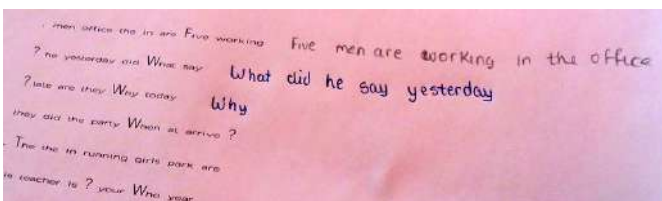 . men office the in are Five working Five men are working in the office
? he yesterday did What say What did he say yesterday
? late are they Why today Why
they did the party When at arrive ?
. The the in running girls park are
is teacher is ? your Who year